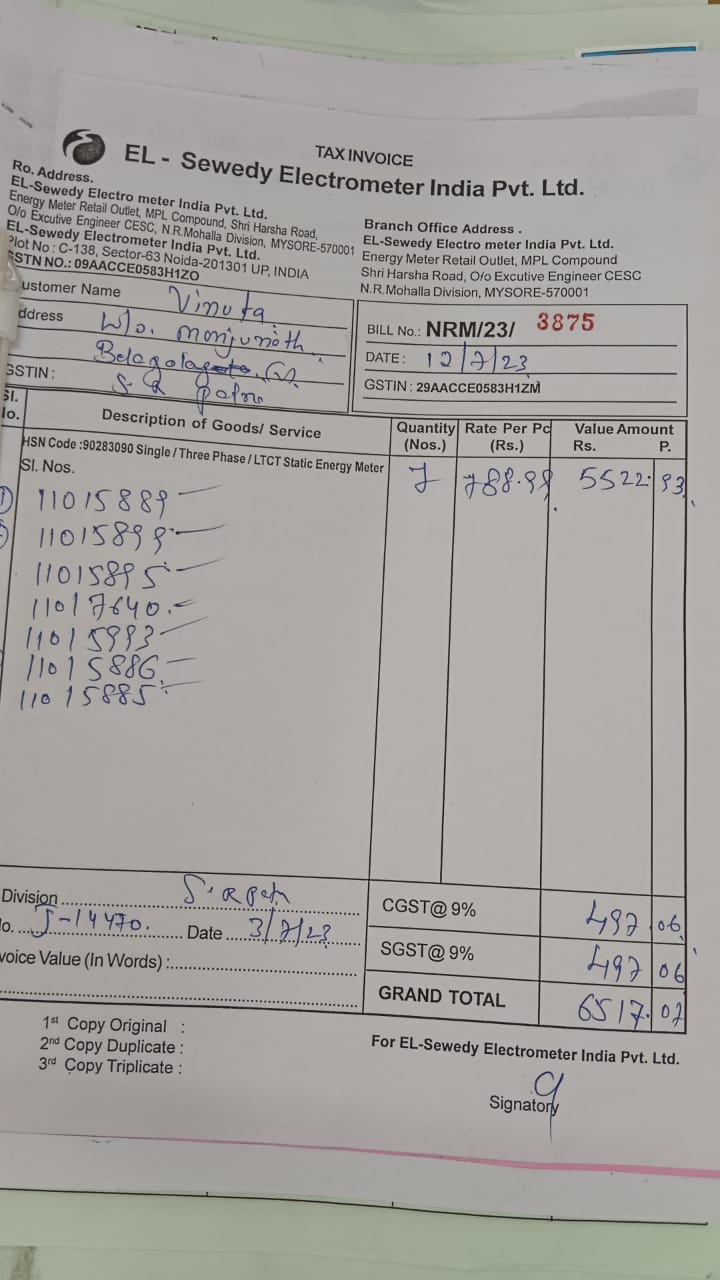 TAX INVOICE
EL - Sewedy Electrometer India Pvt. Ltd.
Ro. Address.
EL-Sewedy Electro meter India Pvt. Ltd.
Energy Meter Retail Outlet, MPL Compound, Shri Harsha Road,
O/o Excutive Engineer CESC, N.R.Mohalla Division, MYSORE-570001
EL-Sewedy Electrometer India Pvt. Ltd.
Plot No : C-138, Sector-63 Noida-201301 UP, INDIA
GSTN NO.: 09AACCE0583H1ZO
Branch Office Address .
EL-Sewedy Electro meter India Pvt. Ltd.
Energy Meter Retail Outlet, MPL Compound
Shri Harsha Road, O/o Excutive Engineer CESC
N.R.Mohalla Division, MYSORE-570001
ustomer Name Vinuta
ddress W/o. manjunath
GSTIN :
BILL No.: NRM/23/ 3875
DATE : 12/7/23
GSTIN : 29AACCE0583H1ZM
Sl. No. Description of Goods/ Service Quantity (Nos.) Rate Per Pc (Rs.) Value Amount Rs. P.
HSN Code :90283090 Single / Three Phase / LTCT Static Energy Meter 7 788.99 5522.93
Sl. Nos.
11015889
11015899
11015895
11017640
11015993
11015886
11015885
Division
No. J-14470. Date 3/7/23
CGST@ 9% 497.06
SGST@ 9% 497 06
voice Value (In Words) :
GRAND TOTAL 6517.07
1st Copy Original :
2nd Copy Duplicate :
3rd Copy Triplicate :
For EL-Sewedy Electrometer India Pvt. Ltd.
Signatory